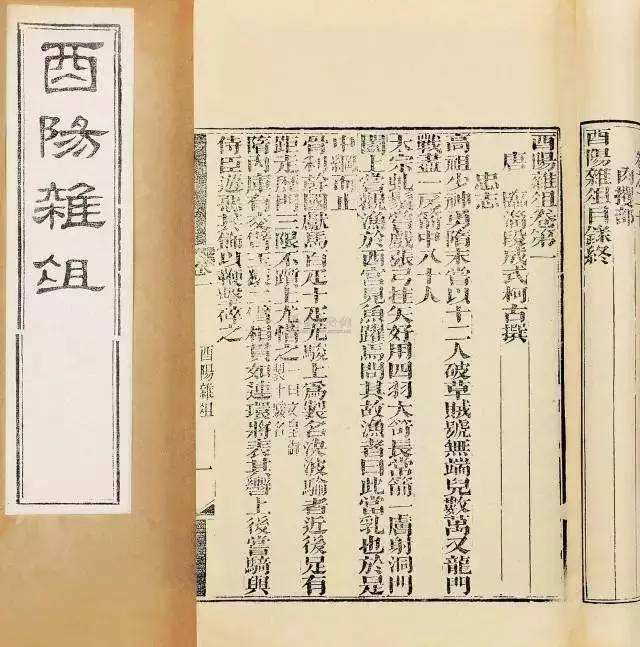 酉陽雜俎
肉攫部
酉陽雜俎目錄終
酉陽雜俎卷第一
唐 臨淄段成式柯古撰
忠志
高祖少神勇隋末嘗以十二人破草賊號無端兒數萬又龍門
戰盡一房箭中八十人
太宗虬髯嘗戲張弓挂矢好用四羽大笴長常箭一膚射洞門
闔上嘗觀漁於西宮見魚躍焉問其故漁者曰此當乳也於是
中網而止
骨利幹國獻馬百疋十疋尤駿上為製名決波騟者近後足有
距走歷門三限不躓上尤惜之
隋內庫有交臂玉猿二臂相貫如連環將表其轡上後嘗騎與
侍臣遊惡其飾以鞭擊碎之
酉陽雜俎
一